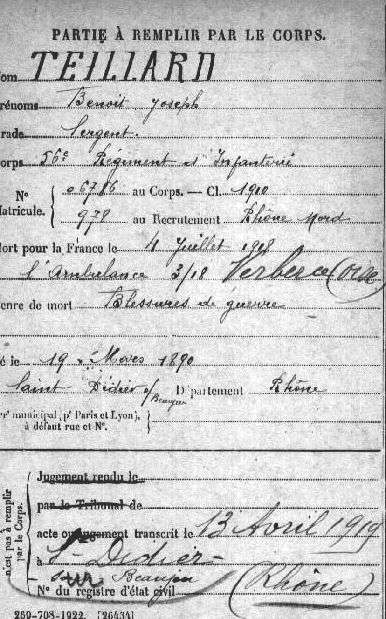 PARTIE À REMPLIR PAR LE CORPS.
om TEILLARD
rénoms Benoit Joseph
rade Sergent
orps 56e Régiment d'Infanterie
No 06786 au Corps. — Cl. 1910
Matricule. 978 au Recrutement Rhône Nord
ort pour la France le 4 Juillet 1918
l'Ambulance 3/18 Verberie (Oise)
enre de mort Blessures de guerre
é le 19 Mars 1890
Saint Didier s/ Beaujeu Département Rhône
r' municipal (pr Paris et Lyon),
à défaut rue et No.
Jugement rendu le
par le Tribunal de
acte ou jugement transcrit le 13 Avril 1919
à St Didier
sur Beaujeu (Rhône)
No du registre d'état civil
n'est pas à remplir
par le Corps.
259-708-1922. [26434]